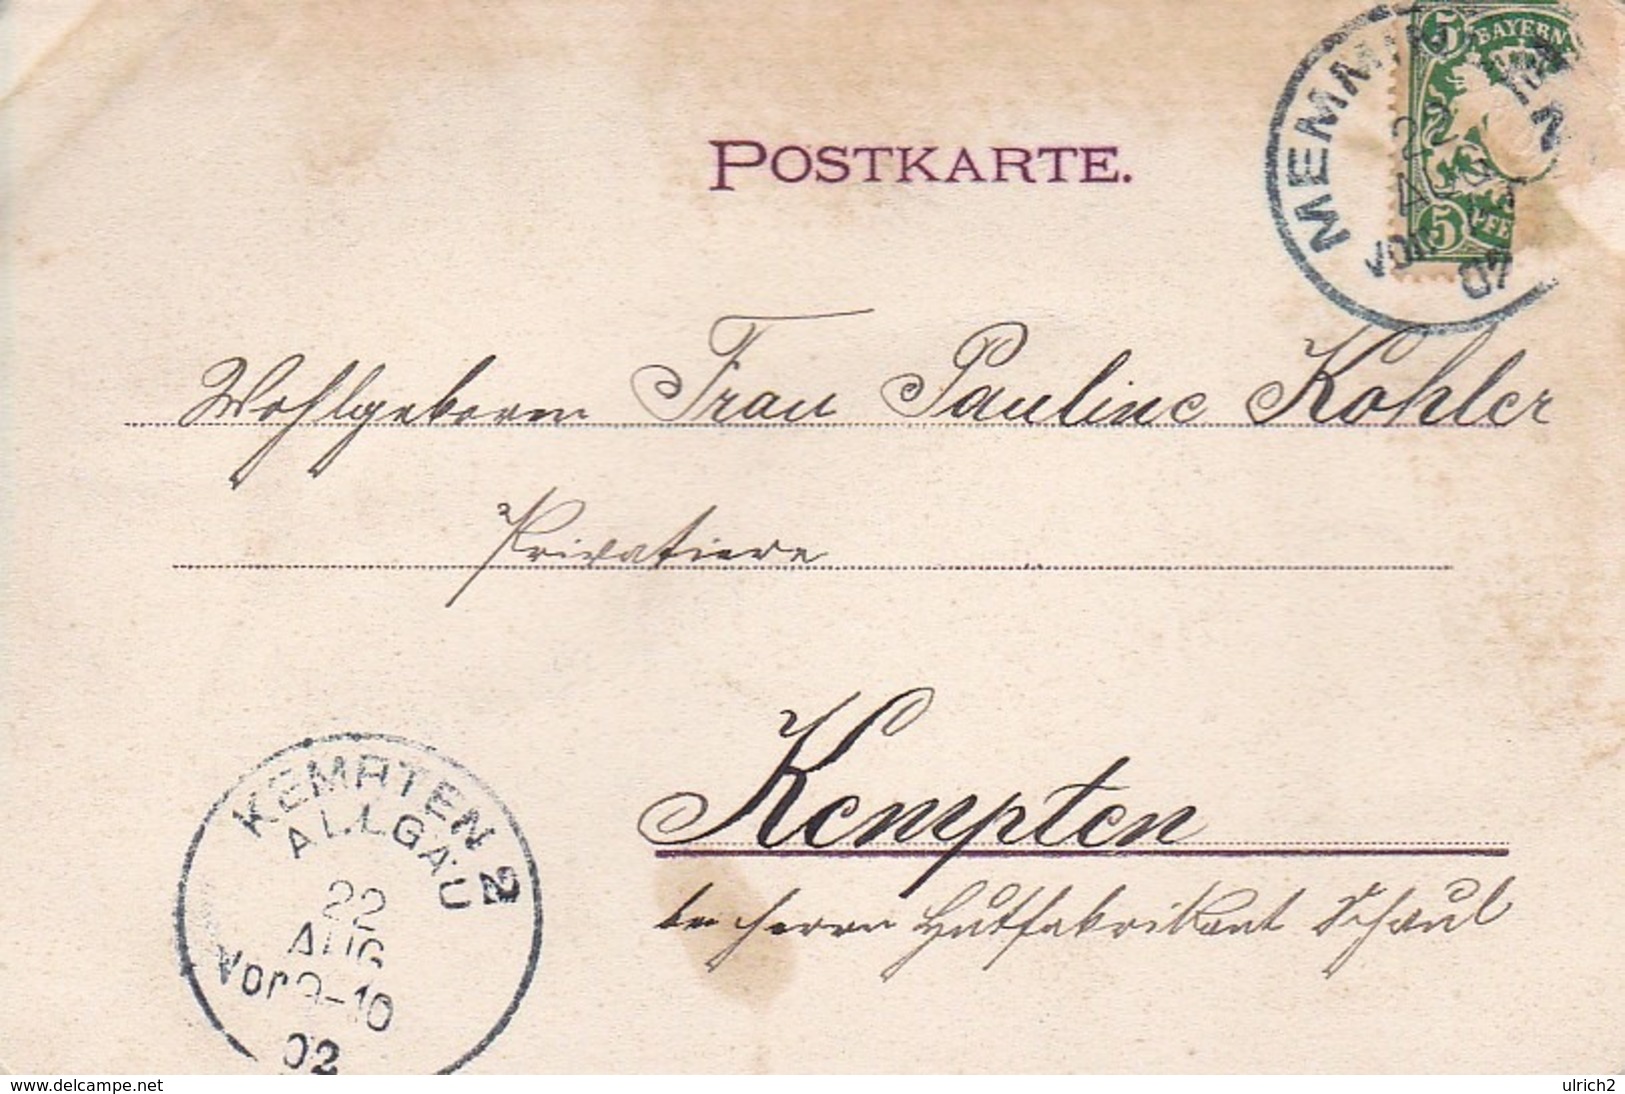 POSTKARTE.
BAYERN
5
5
MEMMIN
22
Vor
02
Wohlgeboren Frau Pauline Kohler
Privatiere
Kempten
bei Herrn Hutfabrikant Schaul
KEMPTEN 2
ALLGÄU
22
AUG
Vor 9-10
02
www.delcampe.net
ulrich2